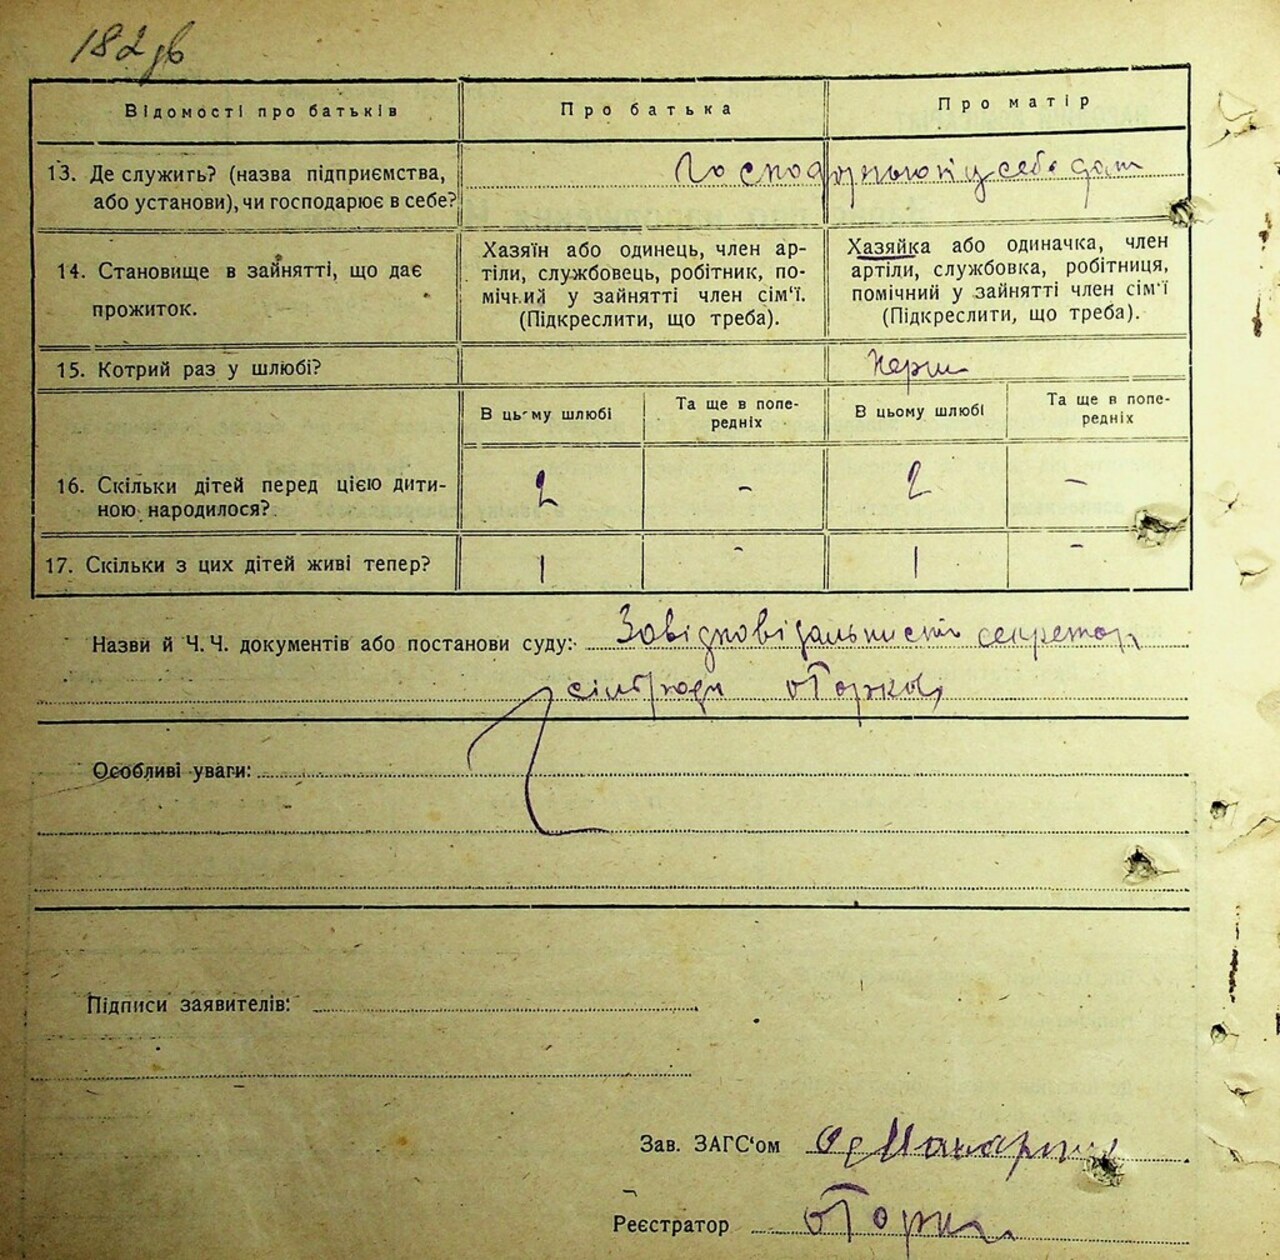 182 зв
Відомості про батьків
Про батька
Про матір
13. Де служить? (назва підприємства,
або установи), чи господарює в себе?
у себе дома
14. Становище в зайнятті, що дає
прожиток.
Хазяїн або одинець, член ар-
тіли, службовець, робітник, по-
мічний у зайнятті член сім'ї.
(Підкреслити, що треба).
Хазяйка або одиначка, член
артіли, службовка, робітниця,
помічний у зайнятті член сім'ї
(Підкреслити, що треба).
15. Котрий раз у шлюбі?
Перши
В цьому шлюбі
Та ще в попе-
редніх
В цьому шлюбі
Та ще в попе-
редніх
16. Скільки дітей перед цією дити-
ною народилося?
2 - 2 -
17. Скільки з цих дітей живі тепер?
1 - 1 -
Назви й Ч. Ч. документів або постанови суду: За відповідальністю секретар
сільради
Особливі уваги:
Підписи заявителів:
Зав. ЗАГС'ом
Реєстратор